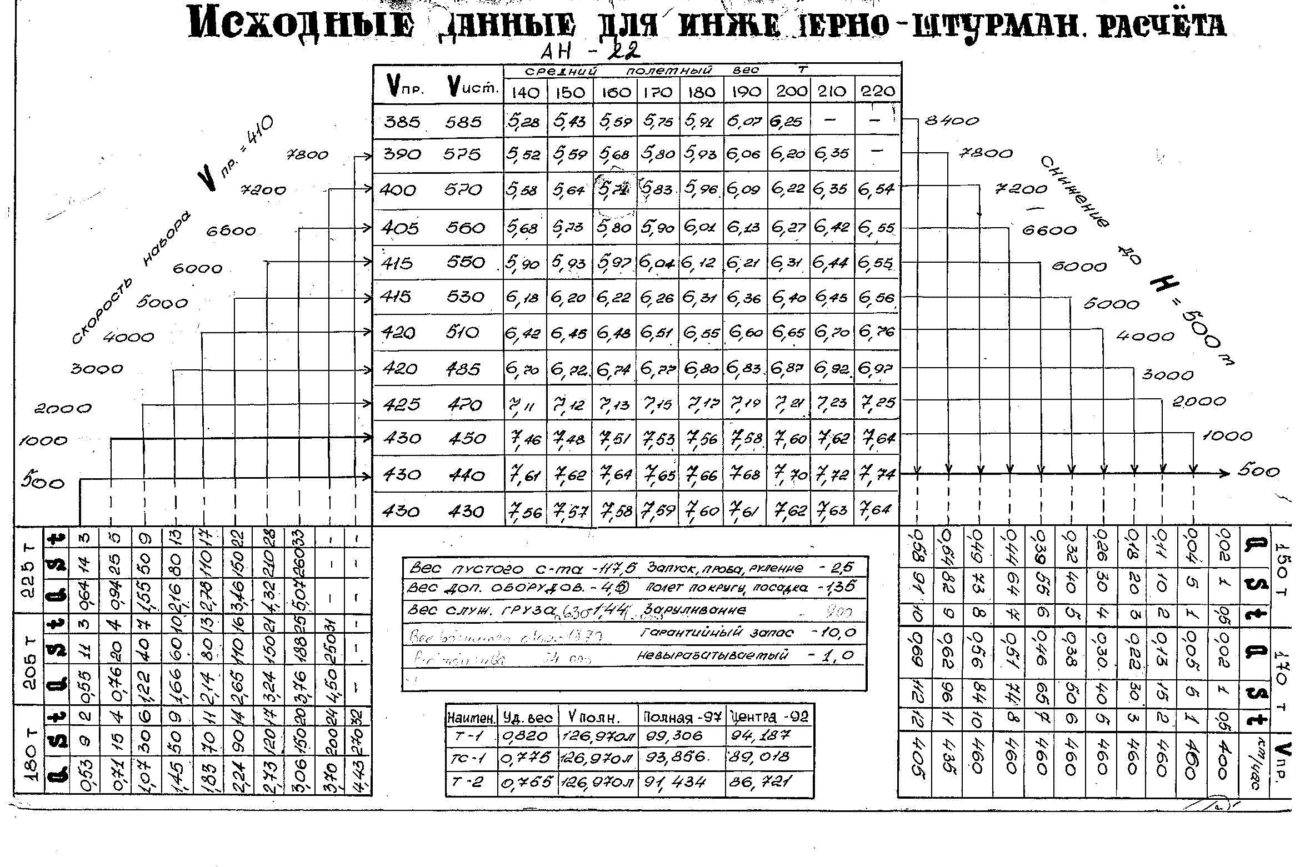 Исходные данные для инженерно-штурман. расчёта
АН - 22
Vпр. Vист. средний полетный вес Т
140 150 160 170 180 190 200 210 220
385 585 5,28 5,43 5,59 5,75 5,91 6,07 6,25 – –
390 575 5,52 5,59 5,68 5,80 5,93 6,06 6,20 6,35 –
400 570 5,58 5,64 5,83 5,96 6,09 6,22 6,35 6,54
405 560 5,68 5,73 5,80 5,90 6,01 6,13 6,27 6,42 6,55
415 550 5,90 5,93 5,97 6,04 6,12 6,21 6,31 6,44 6,55
415 530 6,18 6,20 6,22 6,26 6,31 6,36 6,40 6,45 6,56
420 510 6,42 6,45 6,48 6,51 6,55 6,60 6,65 6,70 6,76
420 485 6,70 6,72 6,74 6,77 6,80 6,83 6,87 6,92 6,97
425 470 7,11 7,12 7,13 7,15 7,17 7,19 7,21 7,23 7,25
430 450 7,46 7,48 7,51 7,53 7,56 7,58 7,60 7,62 7,64
430 440 7,61 7,62 7,64 7,65 7,66 7,68 7,70 7,72 7,74
430 430 7,56 7,57 7,58 7,59 7,60 7,61 7,62 7,63 7,64
скорость набора Vпр. = 410
7800
7200
6600
6000
5000
4000
3000
2000
1000
500
снижение до H = 500 м
8400
7800
7200
6600
6000
5000
4000
3000
2000
1000
500
225 Т
t 3 5 9 13 17 22 28 33 - -
S 14 25 50 80 110 150 210 260 - -
Q 0,64 0,94 1,55 2,16 2,78 3,46 4,32 5,07 - -
205 Т
t 3 4 7 10 13 16 21 25 31 -
S 11 20 40 60 80 110 150 188 250 -
Q 0,55 0,76 1,22 1,66 2,14 2,65 3,24 3,76 4,50 -
180 Т
t 2 4 6 9 11 14 17 20 24 32
S 9 15 30 50 70 90 120 150 200 270
Q 0,53 0,71 1,07 1,45 1,83 2,24 2,73 3,06 3,70 4,43
Вес пустого с-та -117,5 Запуск, проба, руление - 2,5
Вес доп. оборудов. - 4,5 Полет по кругу, посадка - 1,35
Вес служ. груза Заруливание
Гарантийный запас - 10,0
Невырабатываемый - 1,0
Наимен. Уд. вес V полн. Полная -97 Центра -92
Т-1 0,820 126,970л 99,306 94,187
ТС-1 0,775 126,970л 93,856. 89,018
Т-2 0,765 126,970л 91,434 86,721
150 т
Q 0,58 0,54 0,49 0,44 0,39 0,32 0,26 0,18 0,11 0,04 0,02
S 91 82 73 64 55 40 30 20 10 5 1
t 10 9 8 7 6 5 4 3 2 1 0,5
170 т
Q 0,69 0,62 0,56 0,51 0,46 0,38 0,30. 0,22 0,13 0,05 0,02
S 112 96 84 74 65 50 40 30. 15 5 1
t 12 11 10 8 7 6 5 3 2 1 0,5
Vпр. км/час 405 435 460 460 460 460 460 460 460 460 400